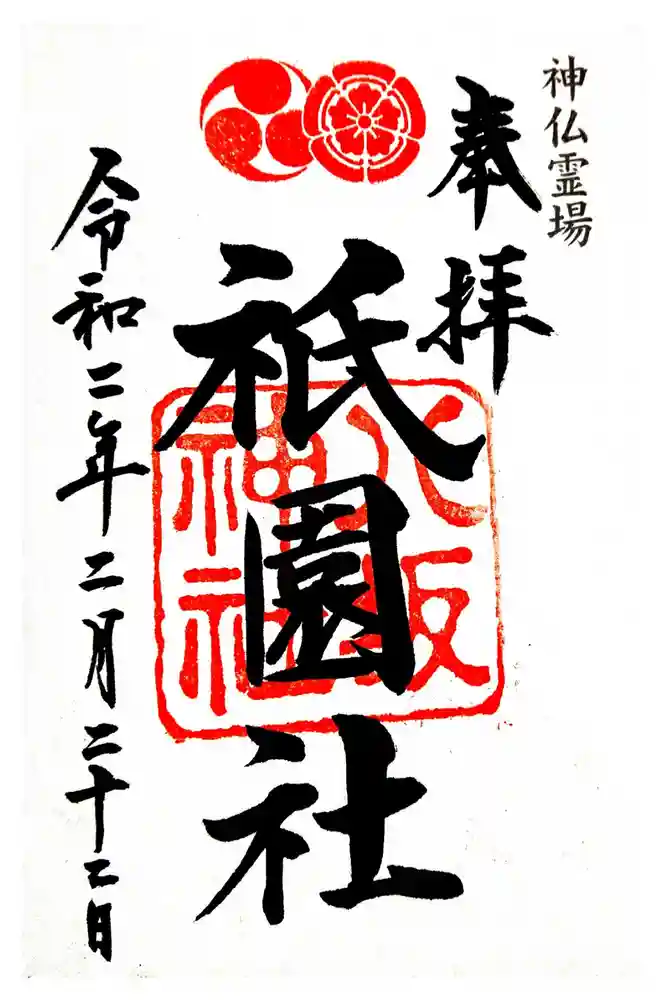 神仏霊場
奉拝
祇園社
八坂
神社
令和二年二月二十二日